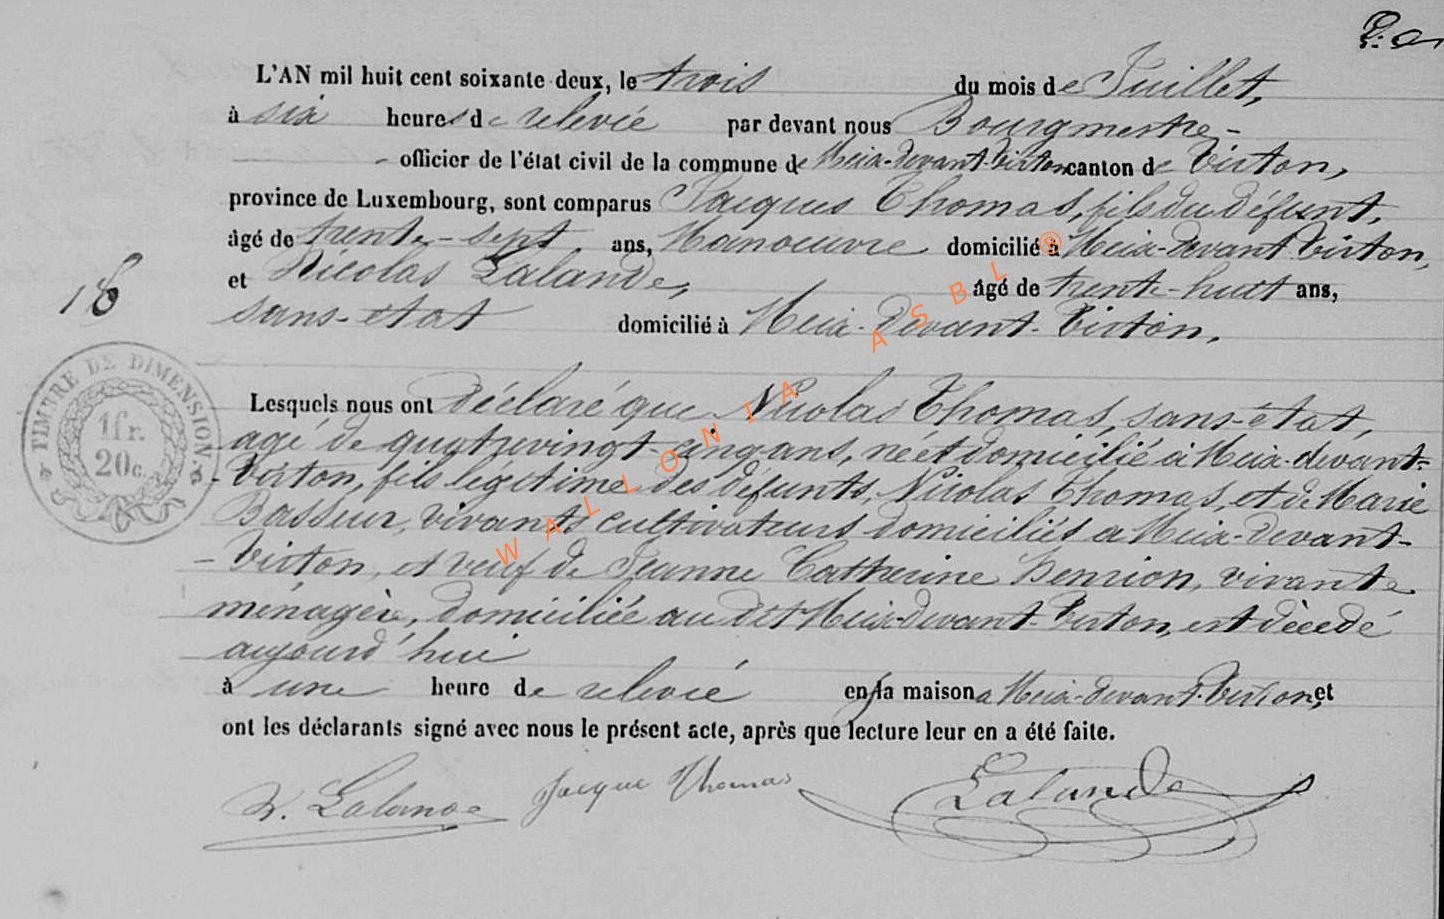 L'AN mil huit cent soixante deux, le trois du mois de Juillet,
à six heures de relevée par devant nous Bourgmestre -
- officier de l'état civil de la commune de Meix-devant-Virton canton de Virton,
province de Luxembourg, sont comparus Jacques Thomas, fils du défunt,
âgé de trente-sept ans, Manoeuvre domicilié à Meix-devant Virton,
et Nicolas Lalande, âgé de trente-huit ans,
18
sans-état domicilié à Meix-devant-Virton,
TIMBRE DE DIMENSION.
1fr.
20c.
Lesquels nous ont déclaré que Nicolas Thomas, sans-état,
agé de quatrevingt-cinq ans, né et domicilié à Meix-devant-
-Virton, fils légitime des défunts, Nicolas Thomas, et de Marie
Basseur, vivants cultivateurs domiciliés a Meix-devant-
-Virton, et veuf de Jeanne Catherine Henrion, vivante
ménagère, domiciliée au dit Meix-devant-Virton, est décedé
aujourd'hui
à une heure de relevée en sa maison a Meix-devant-Virton, et
ont les déclarants signé avec nous le présent acte, après que lecture leur en a été faite.
N. Lalande Jacque Thomas Lalande
WALLONIA ASBL ®